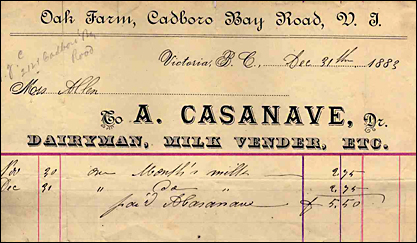 Oak Farm, Cadboro Bay Road, V. I.
Road
Victoria, B. C., Dec 31st 1883
Mrs Allen
To A. CASANAVE, Dr.
DAIRYMAN, MILK VENDER, ETC.
Nov 30 one Month's milk 2.75
Dec 31 " do " 2.75
paid A Casanave $ 5.50